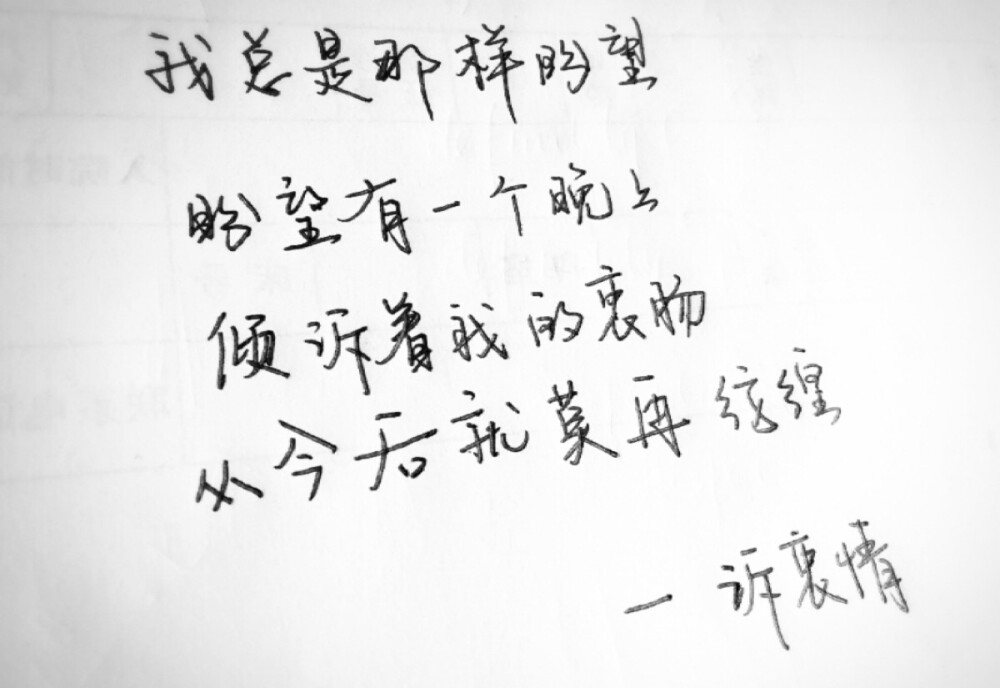 我总是那样盼望
盼望有一个晚上
倾诉着我的衷肠
从今后就莫再缠
—诉衷情